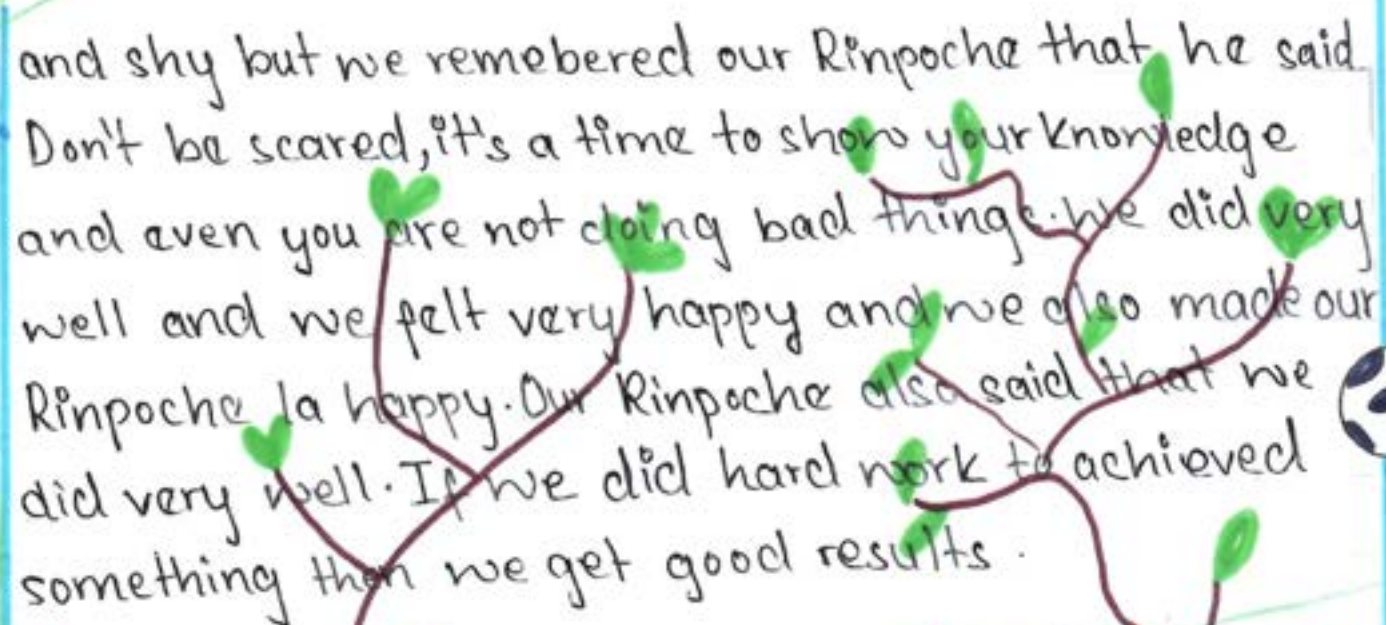 and shy but we remebered our Rinpoche that he said
Don't be scared, it's a time to show your knowledge
and even you are not doing bad things. We did very
well and we felt very happy and we also made our
Rinpoche la happy. Our Rinpoche also said that we
did very well. If we did hard work to achieved
something then we get good results.